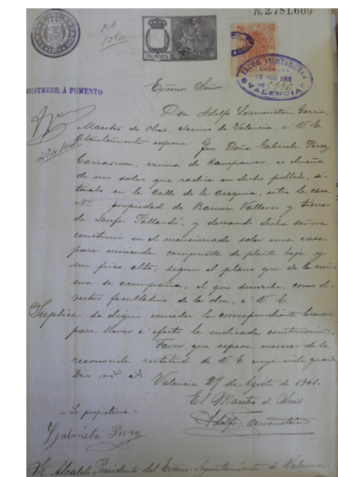 N. 2781,609
REGISTRESE. Á FOMENTO
EXCMO. AYUNTAMIENTO
VALENCIA
Excmo. Señor.
Don Adolfo Garcia,
Maestro de Obras, vecino de Valencia, á V. E.
atentamente expone: Que Doña Gabriela Perez
Carrascosa, vecina de Campanar, es dueña
de un solar que radica en dicho poblado, si-
tuado en la Calle de la Acequia, entre la casa
Nº propiedad de Ramon Valloses y tierras
de y deseando dicha señora
construir en el mencionado solar una casa
para vivienda compuesta de planta baja y
un piso alto, segun el plano que de la mis-
ma se acompaña, el que suscribe, como di-
rector facultativo de la obra, á V. E.
Suplica se digne conceder la correspondiente licencia
para llevar á efecto la indicada construccion.
Favor que espera merecer de la
reconocida rectitud de V. E. cuya vida guarde
Dios
Valencia 27 de Agosto de 1901.
El Maestro de Obras
Adolfo
La propietaria
Gabriela Perez
Alcalde Presidente del Excmo Ayuntamiento de Valencia